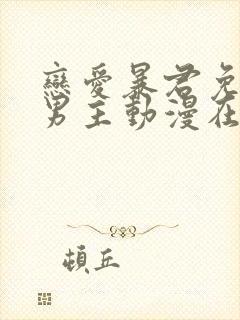 戀愛暴君免
男主動漫在
頓丘